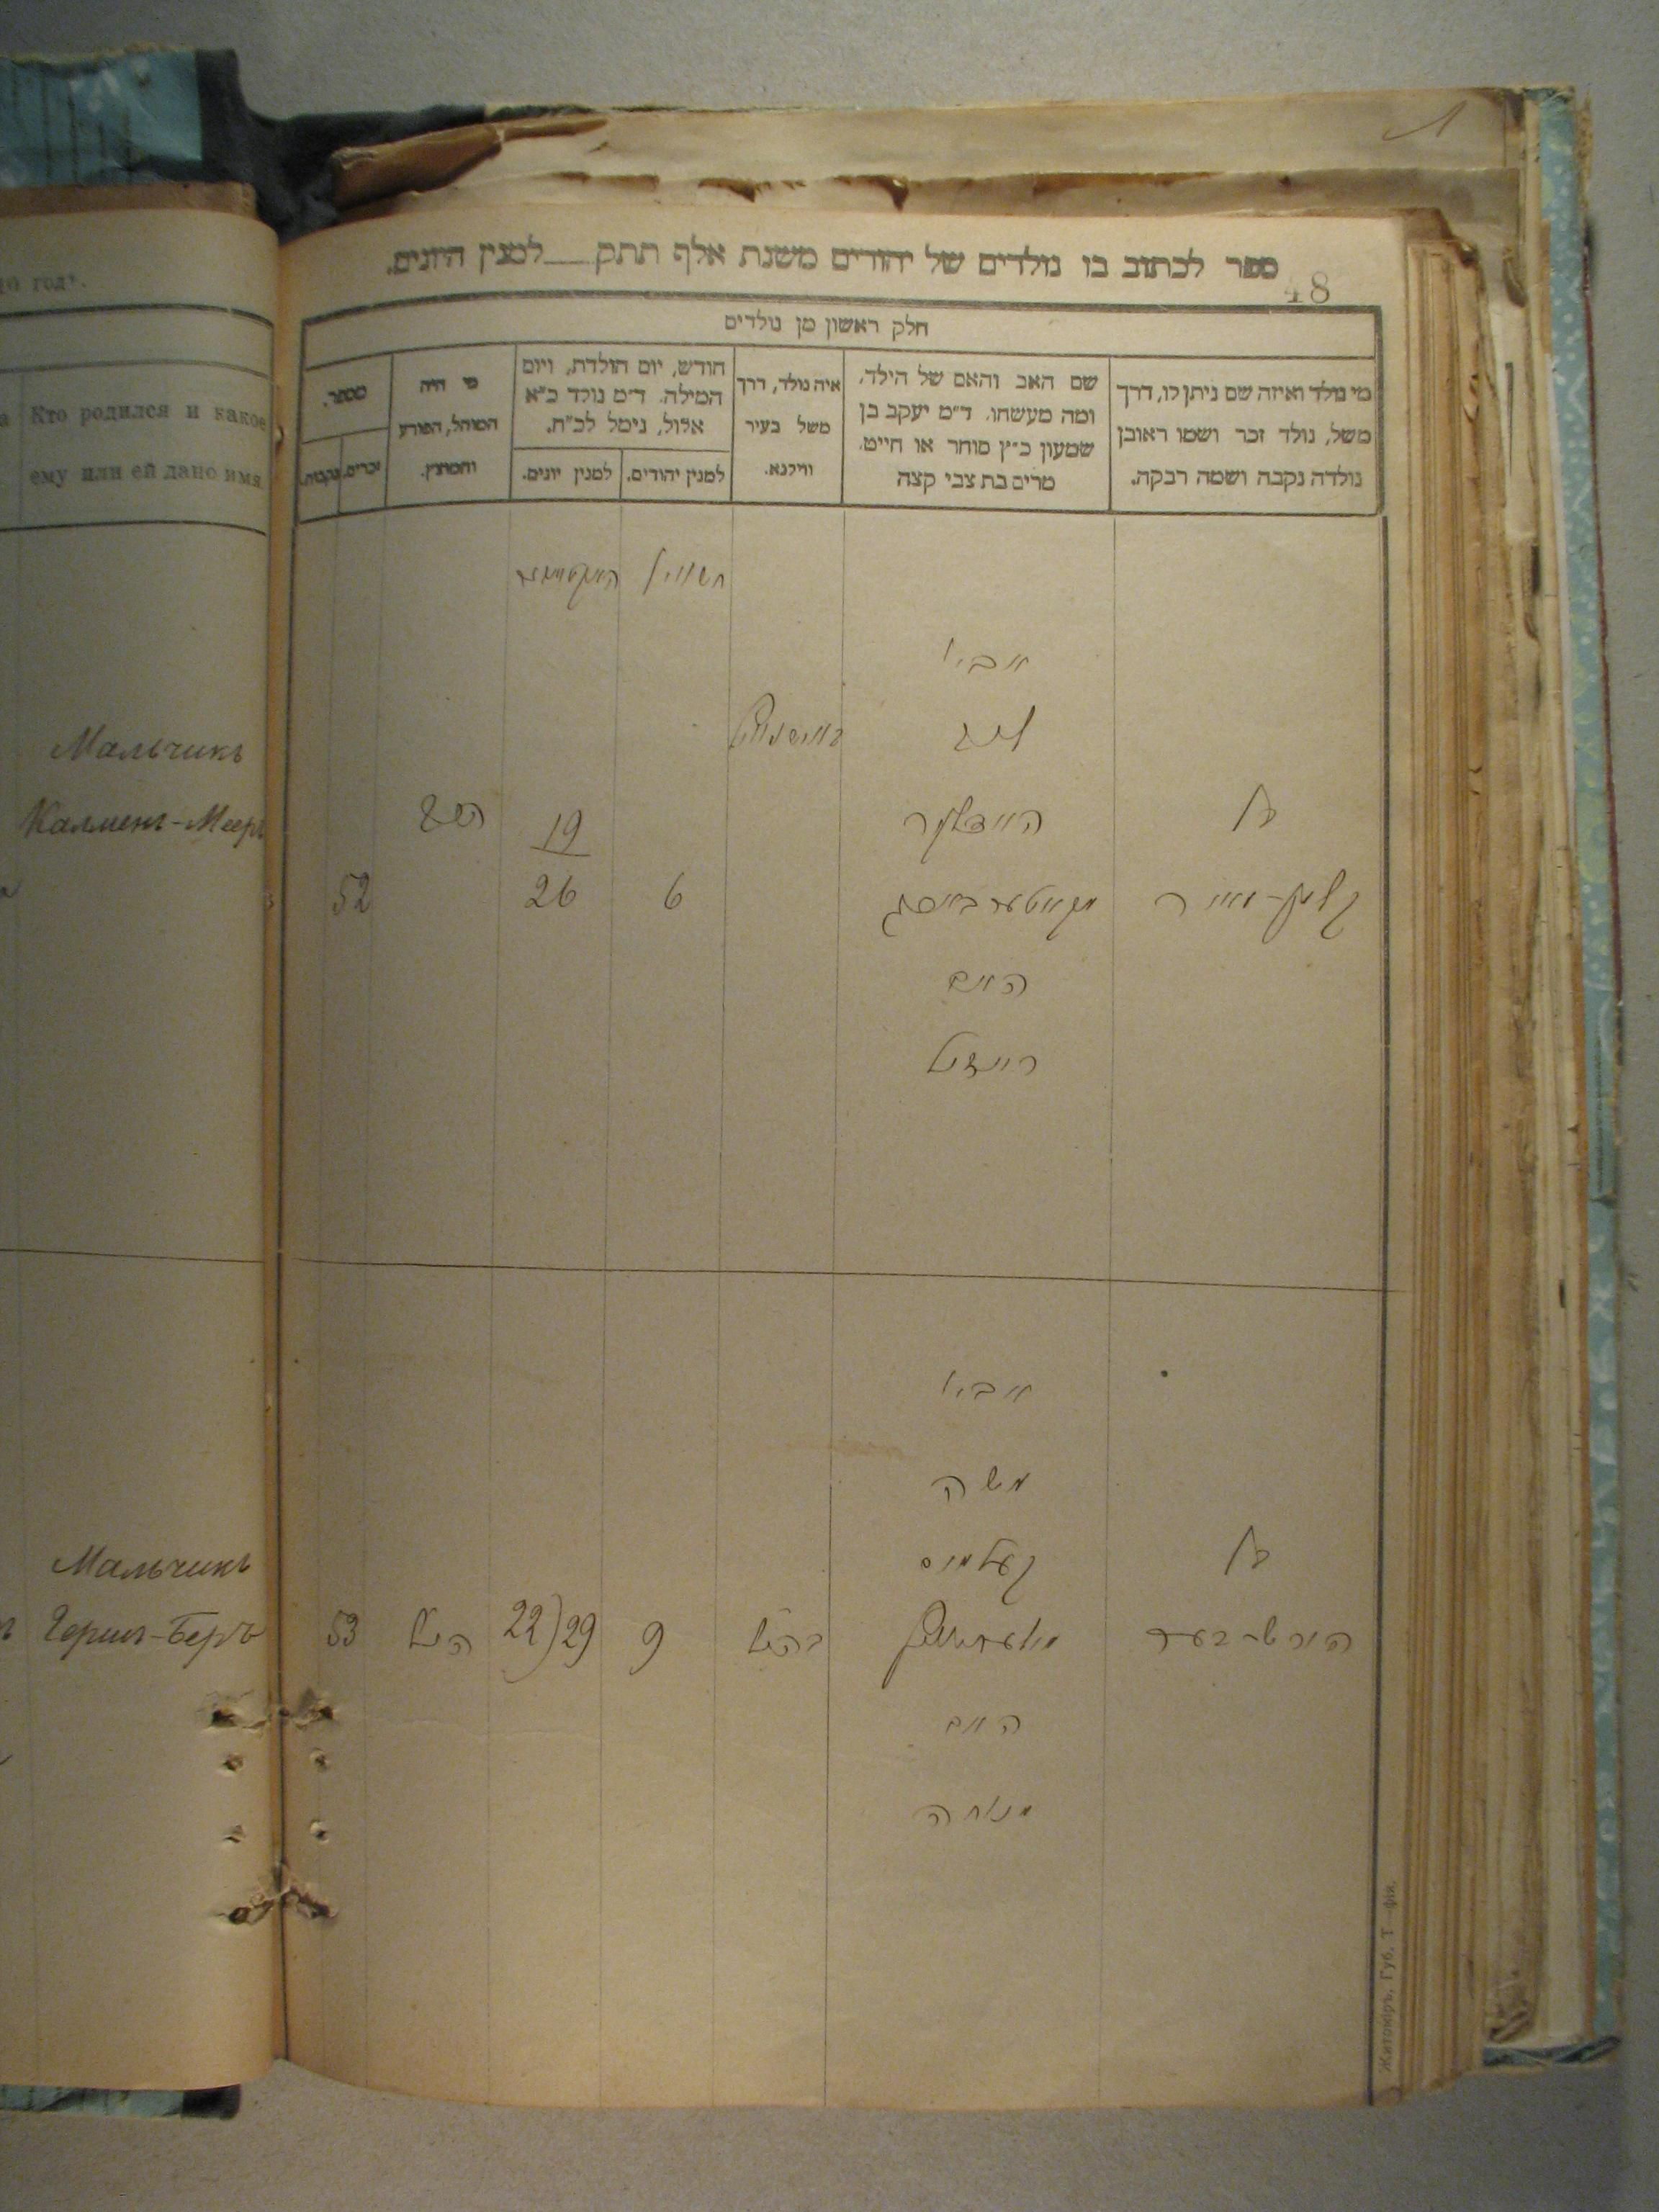 10 годъ.
Кто родился и какое
ему или ей дано имя
Мальчикъ
Калменъ-Мееръ
Мальчикъ
Гершъ-Беръ
ספר לכתוב בו נולדים של יהודים משנת אלף תתק___למנין היונים.
48
חלק ראשון מן נולדים
מי נולד ואיזה שם ניתן לו, דרך
משל, נולד זכר ושמו ראובן
נולדה נקבה ושמה רבקה.
שם האב והאם של הילד,
ומה מעשהו. ד"מ יעקב בן
שמעון כ"ץ סוחר או חייט.
מרים בת צבי קצה
איה נולד, דרך
משל בעיר
ווילנא.
חודש, יום תולדת, ויום
המילה. ד"מ נולד כ"א
אלול, נימל לכ"ח.
למנין יהודים.
למנין יונים.
מי היה
המוהל, הפורע
והמוצץ.
מספר.
זכרים.
נקבות.
חשוון
אביו
בן
קלמן-מאיר
האם
רייזיל
6
19
26
52
אביו
משה
בן
הירש-בער
האם
מנוחה
9
22)29
53
Житомiръ, Губ. Т—фiя.